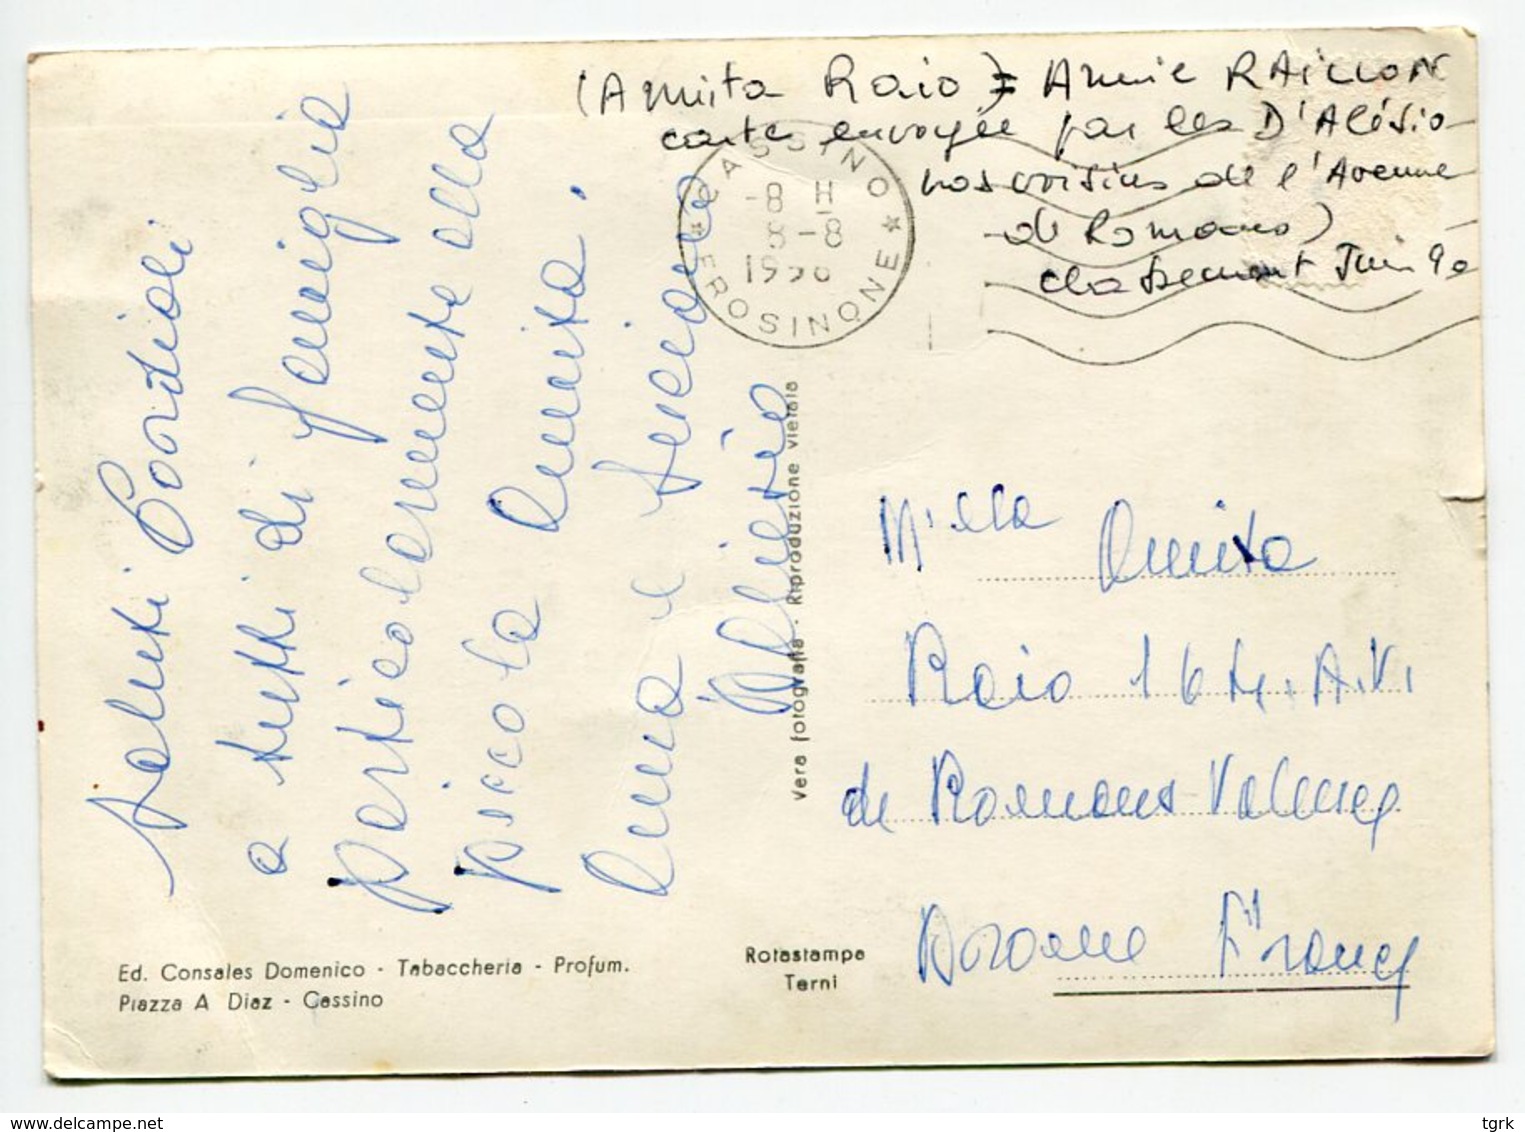 (Amiita Raio) = Annie RAILLON
carte envoyée par les D'Alésio
nos voisins de l'Avenue
de Romans)
classement Juin 90
CASSINO
-8 H
8-8
1956
FROSINONE
Saluti Cordiali
a tutti di famiglia
particolarmente alla
piccola Annita.
Anna e
D'Alesio
Vera fotografia - Riproduzione vietata
M'lla Annita
Raio 164. AV.
de Romans Valence
Drome France
Ed. Consales Domenico - Tabaccheria - Profum.
Piazza A Diaz - Cassino
Rotastampa
Terni
tgrk